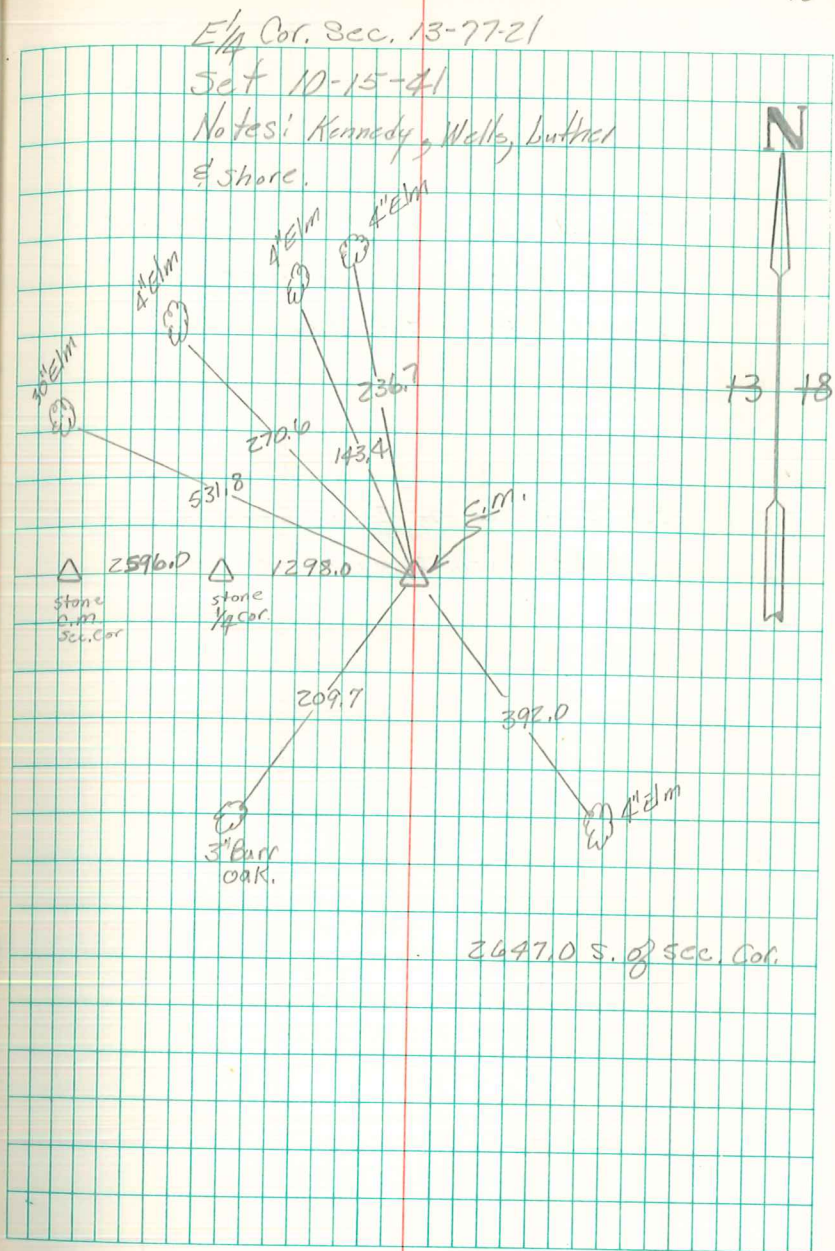 E 1/4 Cor. Sec. 13-77-21
Set 10-15-41
Notes: Kennedy, Wells, Luther
& Shore.
N
4" Elm
4" Elm
4" Elm
30" Elm
236.7
13 18
270.6
143.4
531.8
C.M.
2596.0
1298.0
stone
c.m
Sec. Cor
stone
1/4 cor.
209.7
392.0
4" Elm
3" Burr
oak.
2647.0 S. of Sec. Cor.